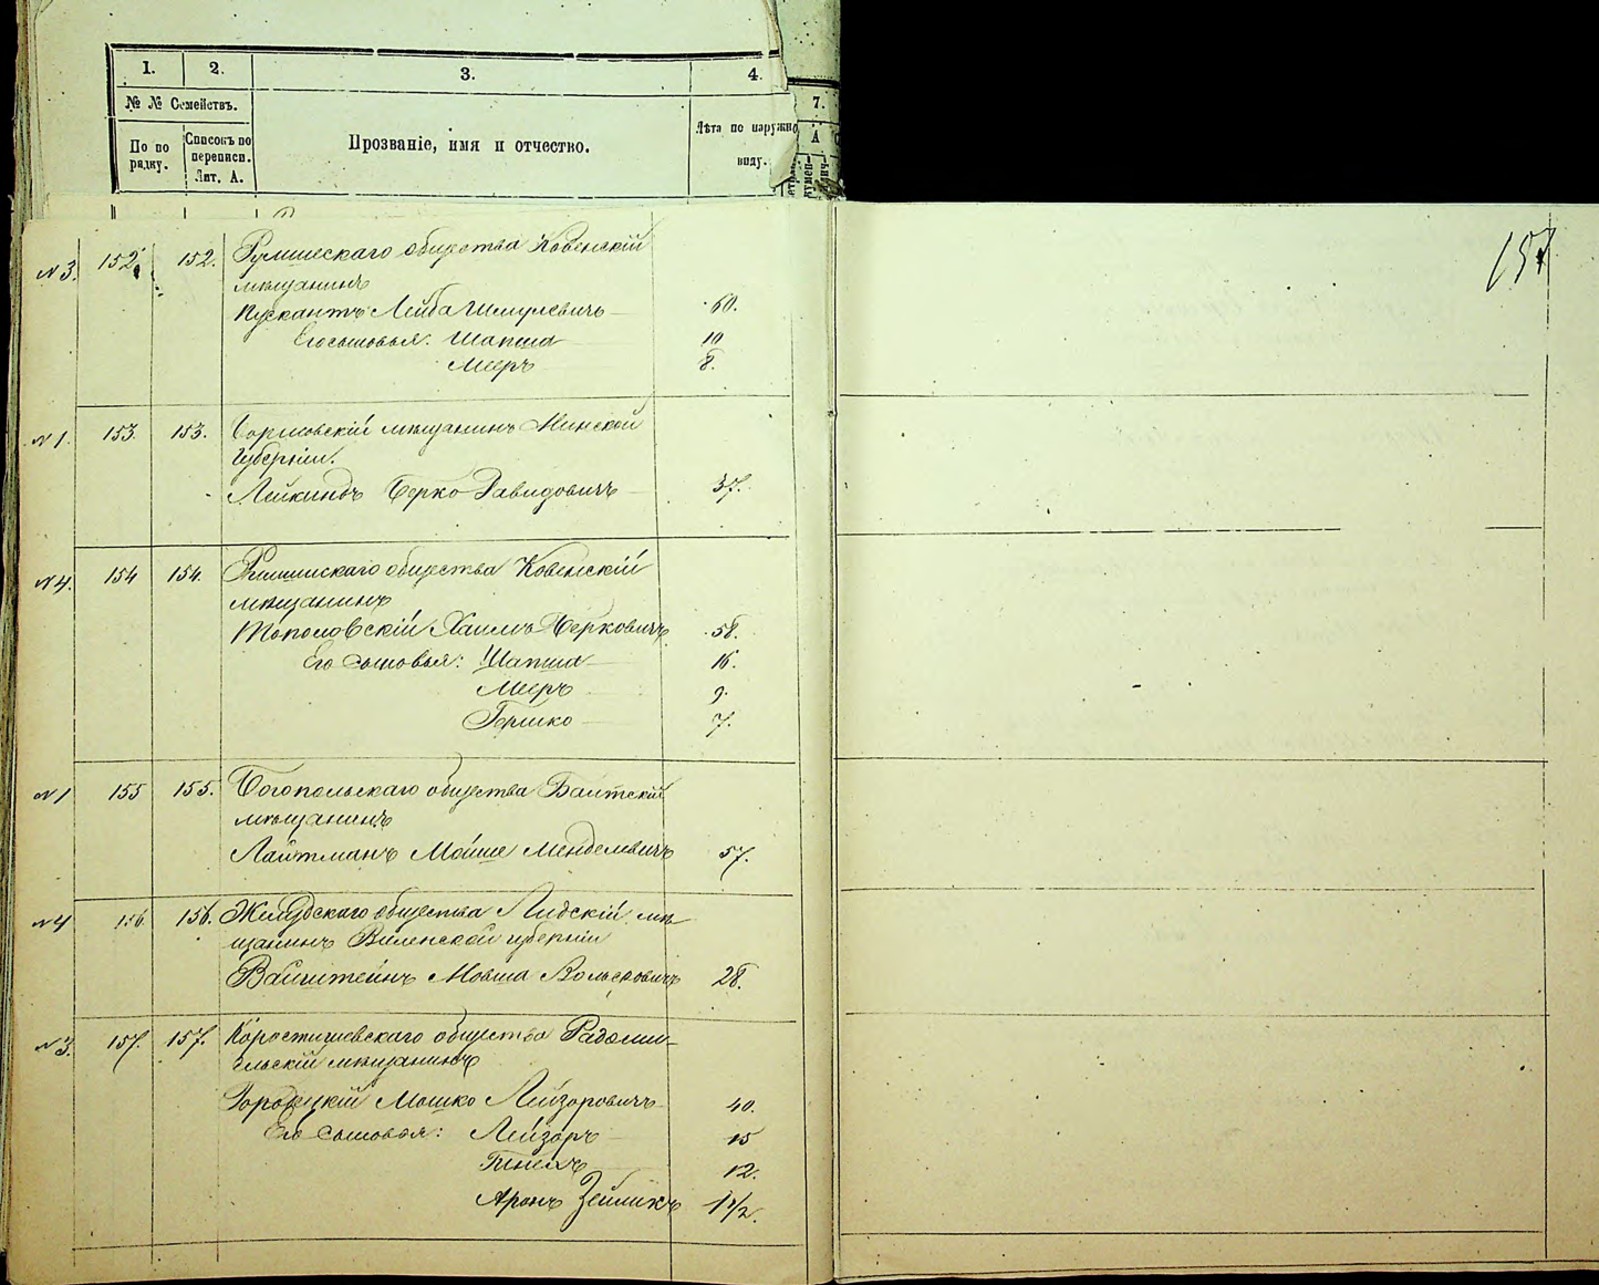 1. 2. 3. 4.
№ № Семействъ.
По по рядку.
Списокъ по переписи. Лит. А.
Прозваніе, имя и отчество.
Лѣта по наружно
виду.
7.
А
157
№3. 152. 152. Румшескаго общества Ковенскій
мѣщанинъ
Пускантъ Лейба Шмулевичъ 60.
Его сыновья: Шапша 10
Мееръ 8.
№1. 153. 153. Борисовскій мѣщанинъ Минской
губерніи.
Лейкиндъ Берко Давидовичъ 37.
№4. 154 154. общества Ковенскій
мѣщанинъ
Тополовскій Хаимъ Берковичъ 58.
Его сыновья: Шапша 16.
Мееръ 9.
Гершко 7.
№1 155 155. Богопольскаго общества Балтскій
мѣщанинъ
Лайтманъ Мойше Менделевичъ 57.
№4 156. 156. Желудскаго общества Лидскій мѣ-
щанинъ Виленской губерніи
Вайнштейнъ Мовша 28.
№3. 157. 157. Коростишевскаго общества Радомы-
сльскій мѣщанинъ
Городецкій Мошко Лейзоровичъ 40.
Его сыновья: Лейзоръ 15
12.
Аронъ Зейликъ 1 1/2.